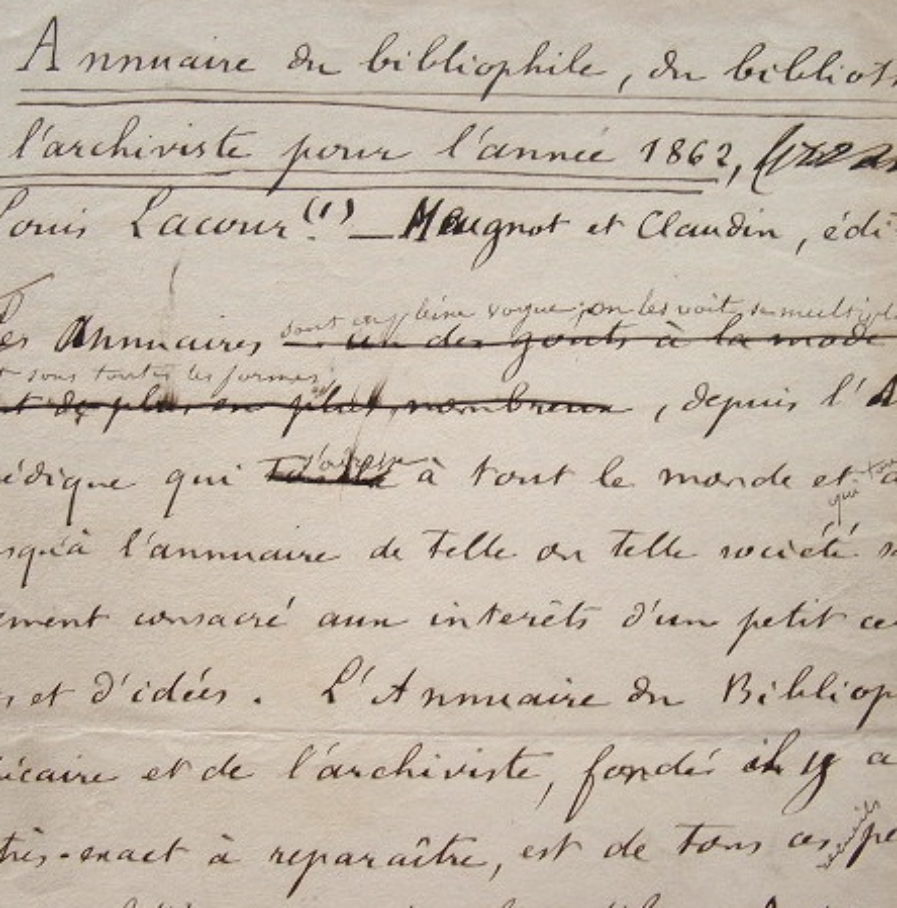 Annuaire du bibliophile, du bibliot
l'archiviste pour l'année 1862,
Louis Lacour (1) — Meugnot et Claudin, édi
sont en pleine vogue; on les voit se multipl
es Annuaires un des gouts à la mode
t sous toutes les formes
t de plus en plus nombreux, depuis l'A
édique qui s'adresse à tout le monde et
qui
squ'à l'annuaire de telle ou telle société s
ement consacré aux interêts d'un petit ce
s et d'idées. L'Annuaire du Bibliop
écaire et de l'archiviste, fondé il y a
très-exact à reparaître, est de tous ces pe
recueils